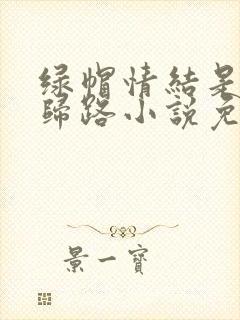 绿帽情結是
歸路小說免
景一寶